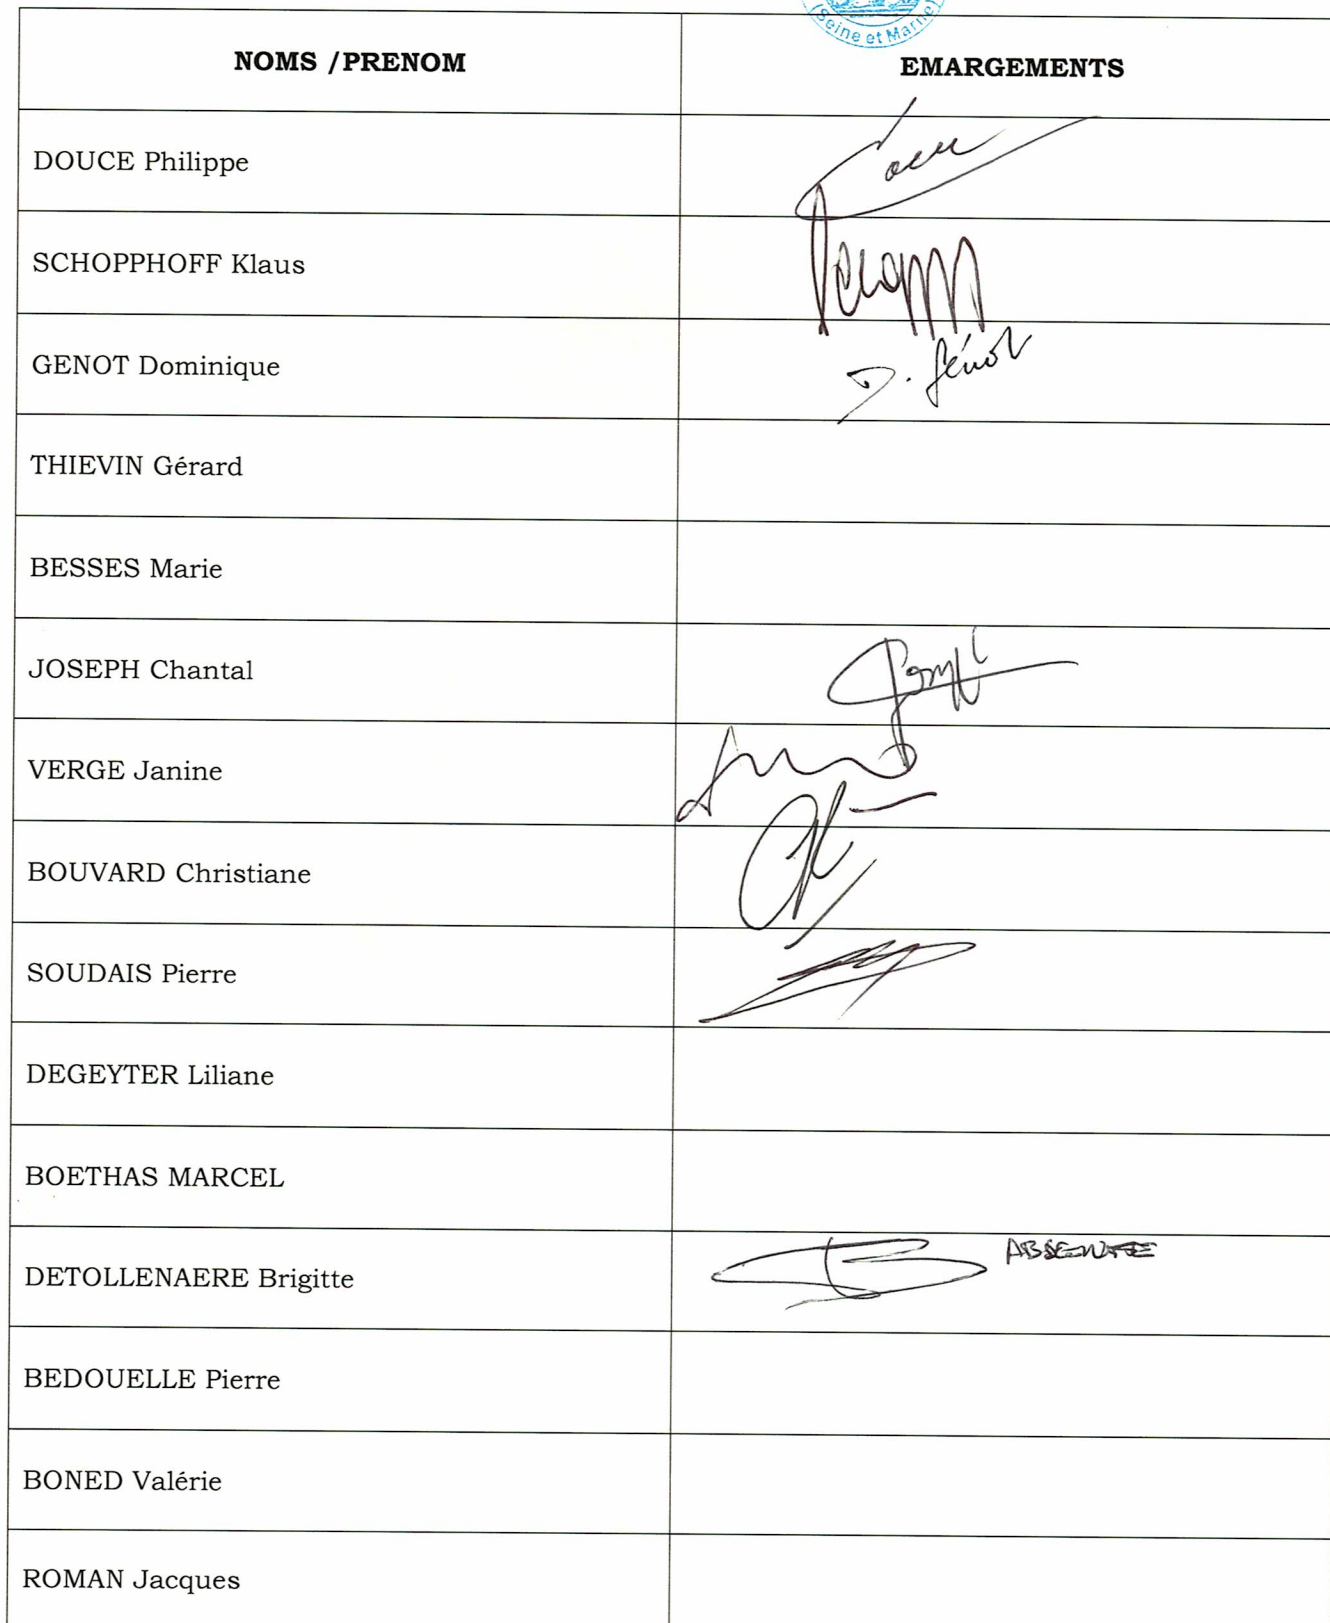 (Seine et Marne)
NOMS /PRENOM
EMARGEMENTS
DOUCE Philippe
SCHOPPHOFF Klaus
GENOT Dominique
D. Génot
THIEVIN Gérard
BESSES Marie
JOSEPH Chantal
VERGE Janine
BOUVARD Christiane
SOUDAIS Pierre
DEGEYTER Liliane
BOETHAS MARCEL
DETOLLENAERE Brigitte
ABSENTE
BEDOUELLE Pierre
BONED Valérie
ROMAN Jacques